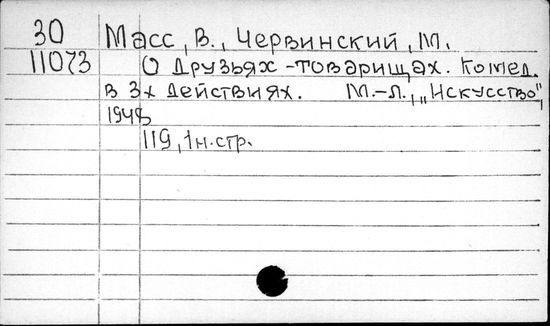 30 Масс, В., Червинский, М.
11073 О друзьях-товарищах. Комед.
в 3х действиях. М.-Л., „Искусство",
1948
119, 1н.стр.